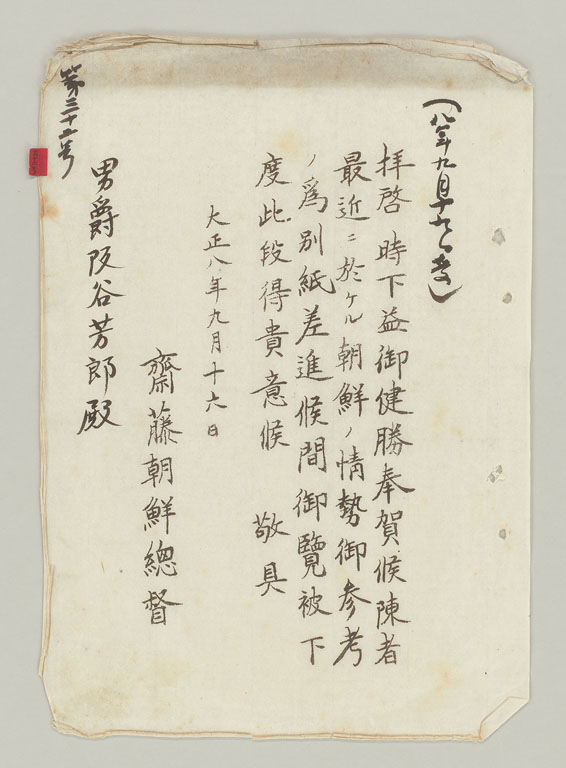 (八年九月十九日考)
拝啓 時下益御健勝奉賀候陳者
最近ニ於ケル朝鮮ノ情勢御参考
ノ爲別紙差進候間御覽被下
度此段得貴意候 敬具
大正八年九月十六日
齋藤朝鮮總督
男爵阪谷芳郎殿
第三十二号